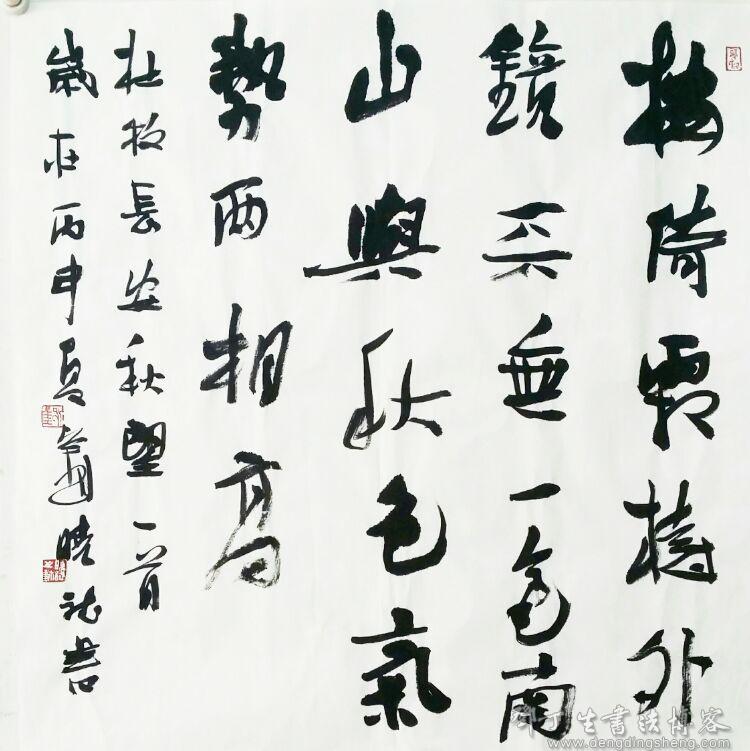 楼倚霜樹外
鏡天無一毫南
山與秋色氣
勢兩相高
杜牧長安秋望一首
歲在丙申夏曉書
邓丁生書法博客
www.dengdingsheng.com